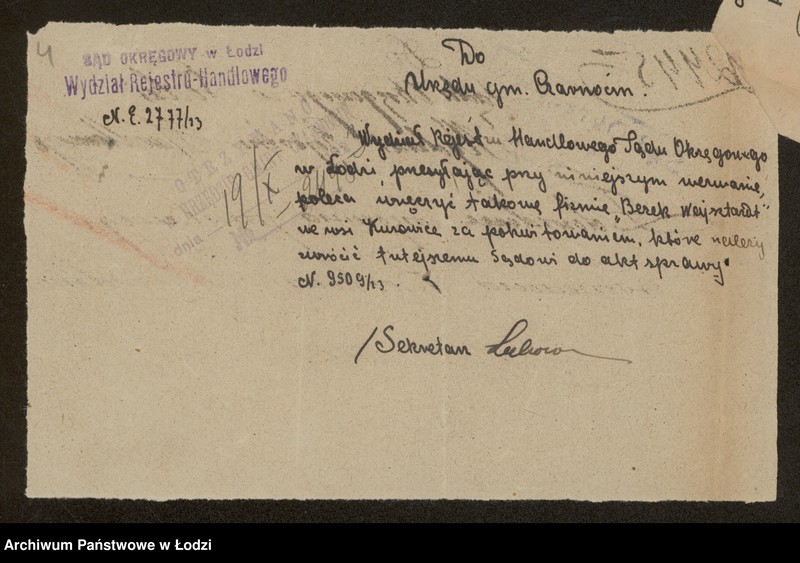 4
SĄD OKRĘGOWY w Łodzi
Wydział Rejestru Handlowego
N. E. 2777/23
Do
Urzędu gm. Czarnocin.
Wydział Rejestru Handlowego Sądu Okręgowego
w Łodzi, przesyłając przy niniejszym wezwanie,
poleca wręczyć takowe firmie „Berek Wajsztardt"
we wsi Kurowice za pokwitowaniem, które należy
zwrócić tutejszemu Sądowi do akt sprawy
N. 9509/23.
19/X
dnia
/Sekretarz
Archiwum Państwowe w Łodzi